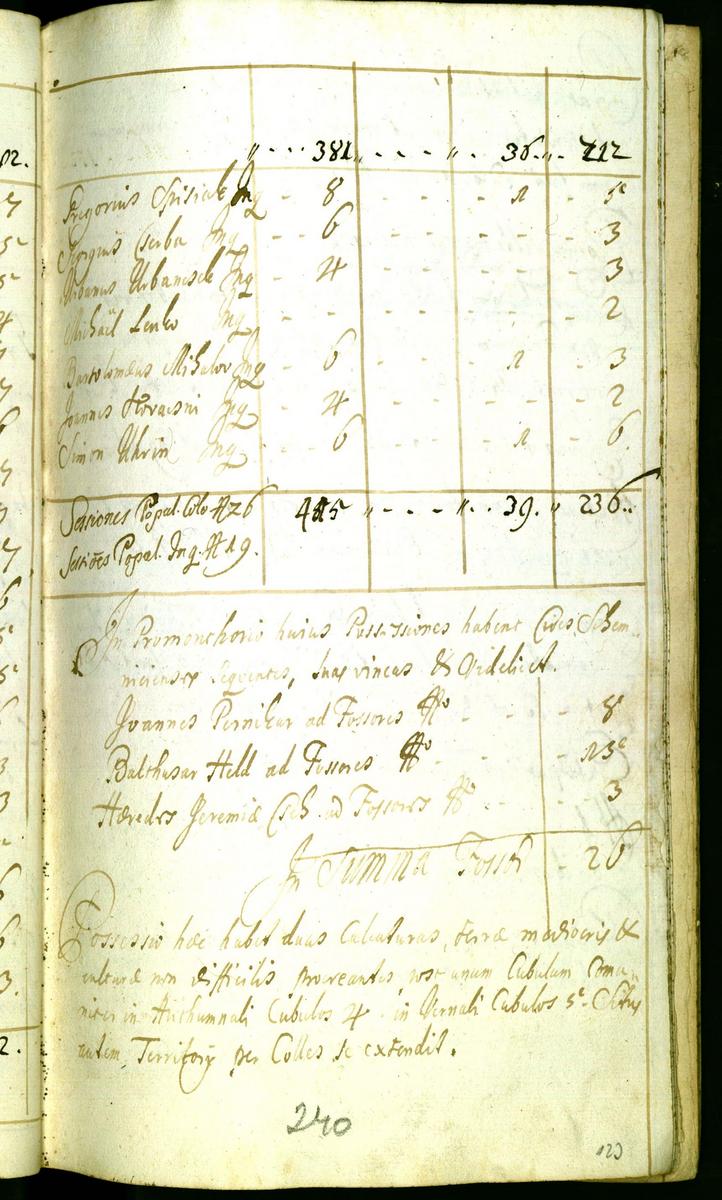 " - - - 381 " - - - - " - 36 " - 212
Gregorius Spisiak Inq - 8 - - - 1 - 5
Georgius Cserba Inq - - 6 - - - - - 3
Urbanus Urbancsek Inq - 4 - - - - - 3
Michaël Lenko Inq - - - - - - - 2
Bartolomæus Mihalov Inq - 6 - - - 1 - 3
Joannes Hovacsni Inq - 4 - - - - - 2
Simon Uhrin Inq - 6 - - - 1 - 6
Sessiones Popul. Colo # 26 415 " - - - " - - 39. " 236..
Sessiões Popul. Inq. # 19.
In Promonthorio huius Possessiones habent Cives Schem-
nicienses sequentes, suas vineas & Videlicet.
Joannes Pernikar ad Fossores - - - 8
Balthasar Held ad Fossores - - - 15
Hæredes Jeremiæ Cseh ad Fossores - - - 3
In Summa Fossor - 26
Possessio hæc habet duas Calcaturas, terræ mediocris &
culturæ non difficilis procreantes, post unum Cubulum Comu-
niter in Authumnali Cubulos 4 in Vernali Cubulos 5. Situs
autem Territorij per Colles se extendit.
240
123